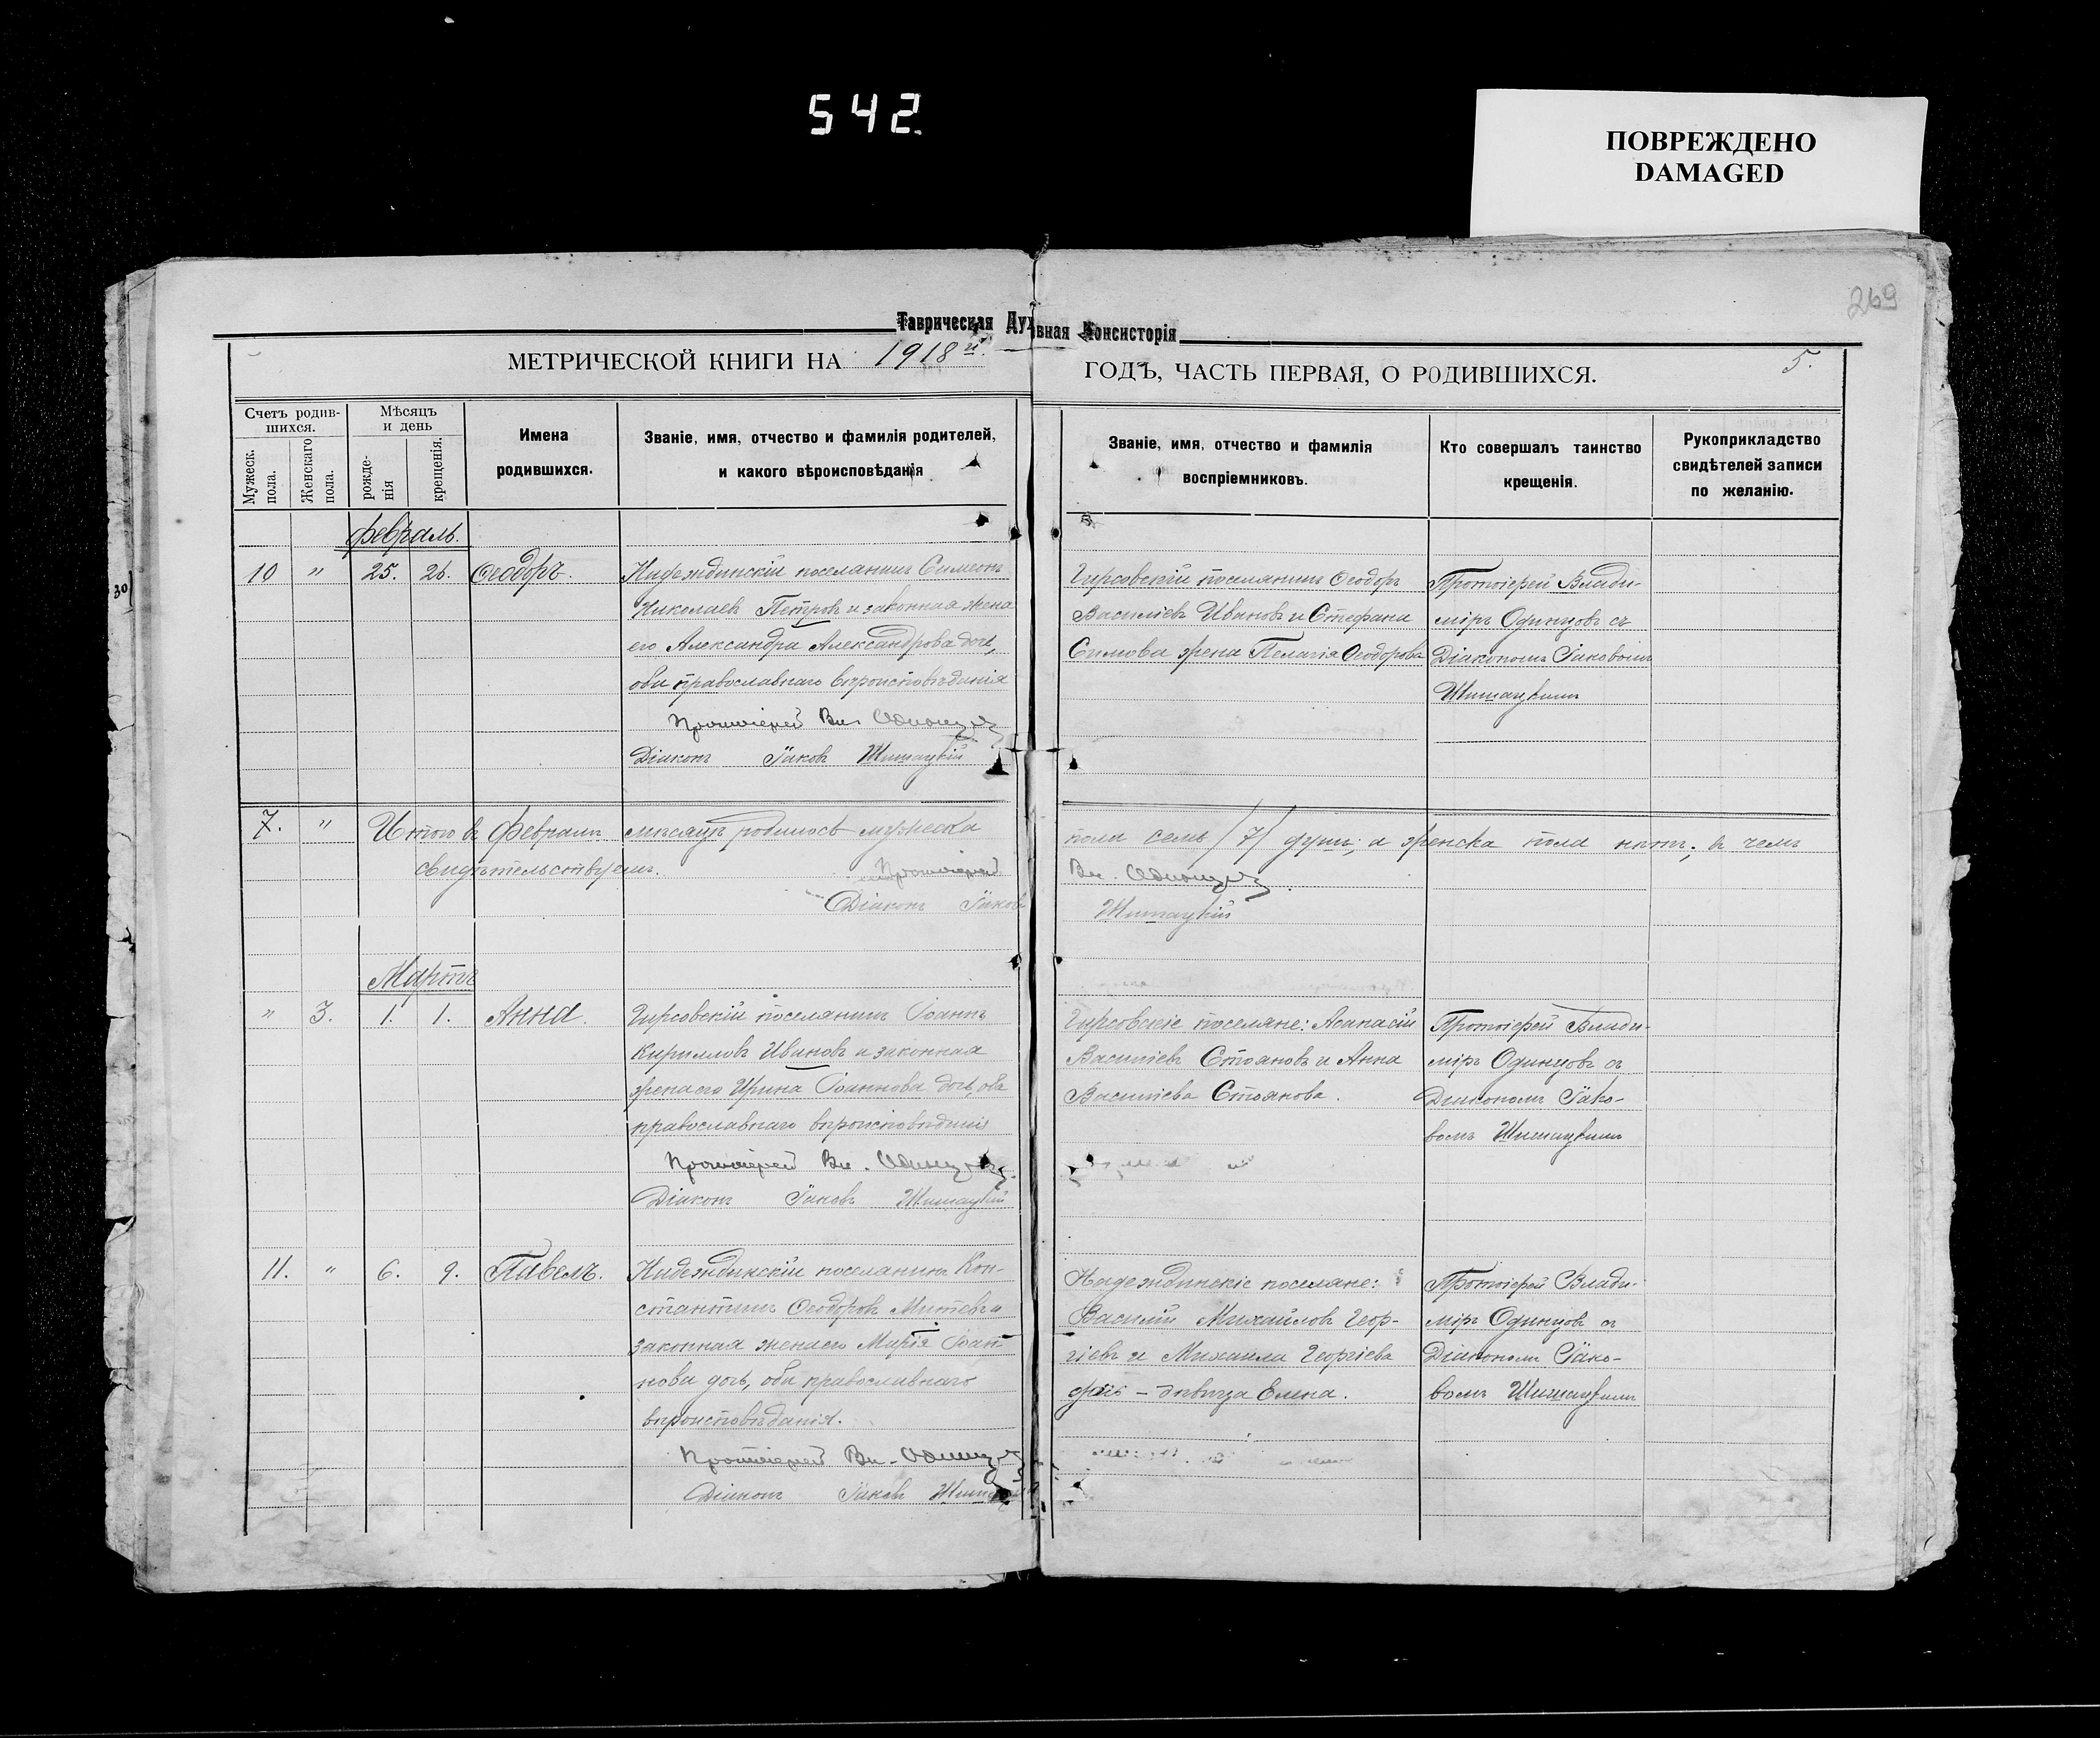 542
ПОВРЕЖДЕНО
DAMAGED
269
Таврическая Духовная Консисторія
МЕТРИЧЕСКОЙ КНИГИ НА 1918й. ГОДЪ, ЧАСТЬ ПЕРВАЯ, О РОДИВШИХСЯ.
5.
Счетъ родив-
шихся.
Мужеск.
пола.
Женскаго
пола.
Мѣсяцъ
и день
рожде-
нія
крещенія.
Имена
родившихся.
Званіе, имя, отчество и фамилія родителей,
и какого вѣроисповѣданія
Званіе, имя, отчество и фамилія
воспріемниковъ.
Кто совершалъ таинство
крещенія.
Рукоприкладство
свидѣтелей записи
по желанію.
30
Февраль.
10 " 25. 26. Ѳеодоръ.
Надеждинскій поселянинъ Симеонъ
Николаевъ Петровъ и законная жена
его Александра Александрова дочь,
оба православнаго вѣроисповѣданія
Протоіерей Вл. Одинцовъ
Діаконъ Іаковъ Шишацкій
Гирсовскій поселянинъ Ѳеодоръ
Василіевъ Ивановъ и Стефана
Симова жена Пелагія Ѳеодорова
Протоіерей Влади-
міръ Одинцовъ съ
Діакономъ Іаковомъ
Шишацкимъ
7. " Итого въ Февралѣ мѣсяцѣ родилось мужеска пола семь /7/ душъ; а женска пола нѣтъ; въ чемъ
свидѣтельствуемъ.
Протоіерей Вл. Одинцовъ.
Діаконъ Іаковъ Шишацкій
Мартъ
" 3. 1. 1. Анна.
Гирсовскій поселянинъ Іоаннъ
Кирилловъ Ивановъ и законная
жена его Ирина Іоаннова дочь, оба
православнаго вѣроисповѣданія
Протоіерей Вл. Одинцовъ.
Діаконъ Іаковъ Шишацкій
Гирсовскіе поселяне: Аѳанасій
Василіевъ Стояновъ и Анна
Василіева Стоянова.
Протоіерей Влади-
міръ Одинцовъ съ
Діакономъ Іако-
вомъ Шишацкимъ
11. " 6. 9. Павелъ.
Надеждинскій поселянинъ Кон-
стантинъ Ѳеодоровъ Митевъ и
законная жена его Марія Іоан-
нова дочь, оба православнаго
вѣроисповѣданія.
Протоіерей Вл. Одинцовъ
Діаконъ Іаковъ
Надеждинскіе поселяне:
Василій Михайловъ Геор-
гіевъ и Михаила Георгіева
дочь - дѣвица Елена.
Протоіерей Влади-
міръ Одинцовъ съ
Діакономъ Іако-
вомъ Шишацкимъ